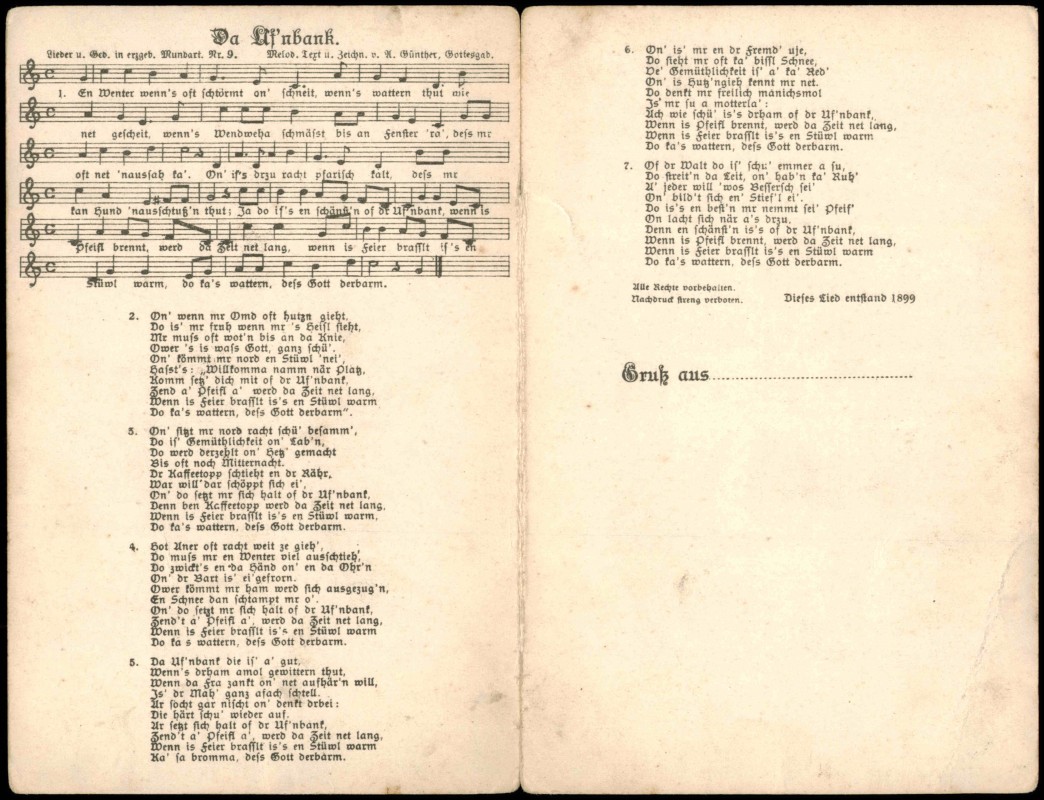 Da Uf'nbank.
Lieder u. Ged. in erzgeb. Mundart. Nr. 9. Melod. Text u. Zeichn. v. A. Günther, Gottesgab.
1. En Wenter wenn's oft schtörmt on' schneit, wenn's wattern thut wie
net gescheit, wenn's Wendweha schmässt bis an Fenster 'ra', dess mr
oft net 'naussah ka'. On' is's drzu racht pfarisch kalt, dess mr
kan Hund 'nausschtuß'n thut: Ja do is's en schänst'n of dr Uf'nbank, wenn is
Pfeifl brennt, werd da Zeit net lang, wenn is Feier brasslt is's en
Stüwl warm, do ka's wattern, dess Gott derbarm.
2. On' wenn mr Omd oft hutzn gieht,
Do is' mr fruh wenn mr 's Heisl sieht,
Mr muss oft wot'n bis an da Knie,
Ower 's is wass Gott, ganz schü'.
On' kömmt mr nord en Stüwl 'nei',
Hasst's: „Willkomma namm när Platz,
Komm setz' dich mit of dr Uf'nbank,
Zend a' Pfeifl a' werd da Zeit net lang,
Wenn is Feier brasslt is's en Stüwl warm
Do ka's wattern, dess Gott derbarm".
3. On' sitzt mr nord racht schü' besamm',
Do is' Gemüthlichkeit on' Lab'n,
Do werd derzehlt on' Hetz' gemacht
Bis oft noch Mitternacht.
Dr Kaffeetopp schtieht en dr Rähr,
War will'dar schöppt sich ei',
On' do setzt mr sich halt of dr Uf'nbank,
Denn ben Kaffeetopp werd da Zeit net lang,
Wenn is Feier brasslt is's en Stüwl warm,
Do ka's wattern, dess Gott derbarm.
4. Hot Aner oft racht weit ze gieh',
Do muss mr en Wenter viel ausschtieh',
Do zwickt's en da Händ on' en da Ohr'n
On' dr Bart is' ei'gefrorn.
Ower kömmt mr ham werd sich ausgezug'n,
En Schnee dan schtampt mr o'.
On' do setzt mr sich halt of dr Uf'nbank,
Zend't a' Pfeifl a', werd da Zeit net lang,
Wenn is Feier brasslt is's en Stüwl warm
Do ka s wattern, dess Gott derbarm.
5. Da Uf'nbank die is' a' gut,
Wenn's drham amol gewittern thut,
Wenn da Fra zankt on' net aufhär'n will,
Is' dr Mah' ganz afach schtell.
Ar socht gar nischt on' denkt drbei:
Die härt schu' wieder auf.
Ar setzt sich halt of dr Uf'nbank,
Zend't a' Pfeifl a', werd da Zeit net lang,
Wenn is Feier brasslt is's en Stüwl warm
Ka' sa bromma, dess Gott derbarm.
6. On' is' mr en dr Fremd' uje,
Do sieht mr oft ka' bissl Schnee,
De' Gemüthlichkeit is' a' ka' Red'
On' is Hutz'ngieh kennt mr net.
Do denkt mr freilich mänichsmol
Is' mr su a motterla':
Ach wie schü' is's drham of dr Uf'nbank,
Wenn is Pfeifl brennt, werd da Zeit net lang,
Wenn is Feier brasslt is's en Stüwl warm
Do ka's wattern, dess Gott derbarm.
7. Of dr Walt do is' schu' emmer a su,
Do streit'n da Leit, on' hab'n ka' Ruh'
A' jeder will 'wos Bessersch sei'
On' bild't sich en' Stief'l ei'.
Do is's en best'n mr nemmt sei' Pfeif'
On lacht sich när a's drzu,
Denn en schänst'n is's of dr Uf'nbank,
Wenn is Pfeifl brennt, werd da Zeit net lang,
Wenn is Feier brasslt is's en Stüwl warm
Do ka's wattern, dess Gott derbarm.
Alle Rechte vorbehalten.
Nachdruck streng verboten. Dieses Lied entstand 1899
Gruß aus